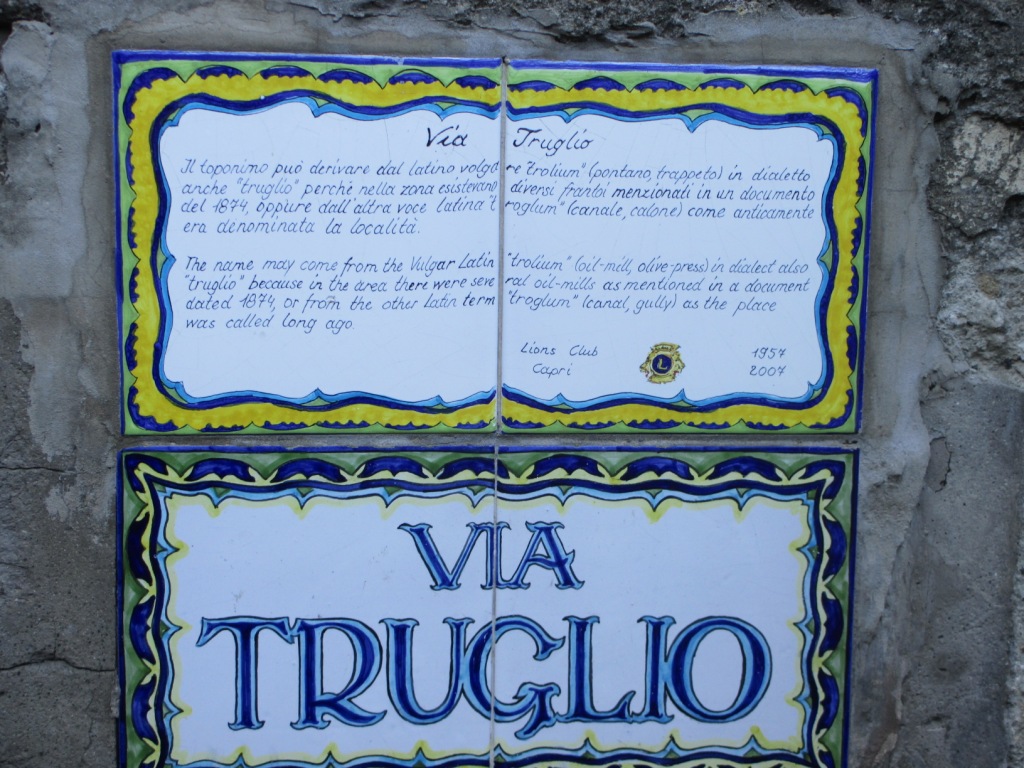 Via Truglio
Il toponimo può derivare dal latino volgare "trolium" (pontano, trappeto) in dialetto
anche "truglio" perchè nella zona esistevano diversi frantoi menzionati in un documento
del 1874, oppure dall'altra voce latina "troglum" (canale, calone) come anticamente
era denominata la località.
The name may come from the Vulgar Latin "trolium" (oil-mill, olive-press) in dialect also
"truglio" because in the area there were several oil-mills as mentioned in a document
dated 1874, or from the other latin term "troglum" (canal, gully) as the place
was called long ago.
Lions Club 1957
Capri 2007
L
VIA
TRUGLIO